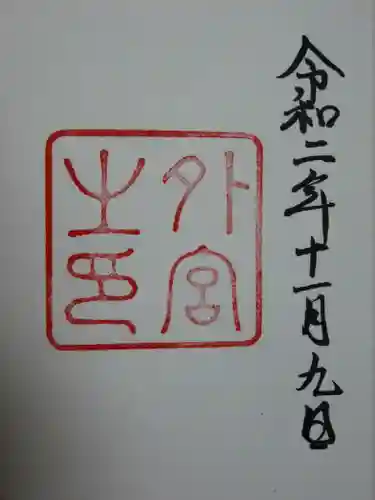 令和二年十一月九日
外宮
之印